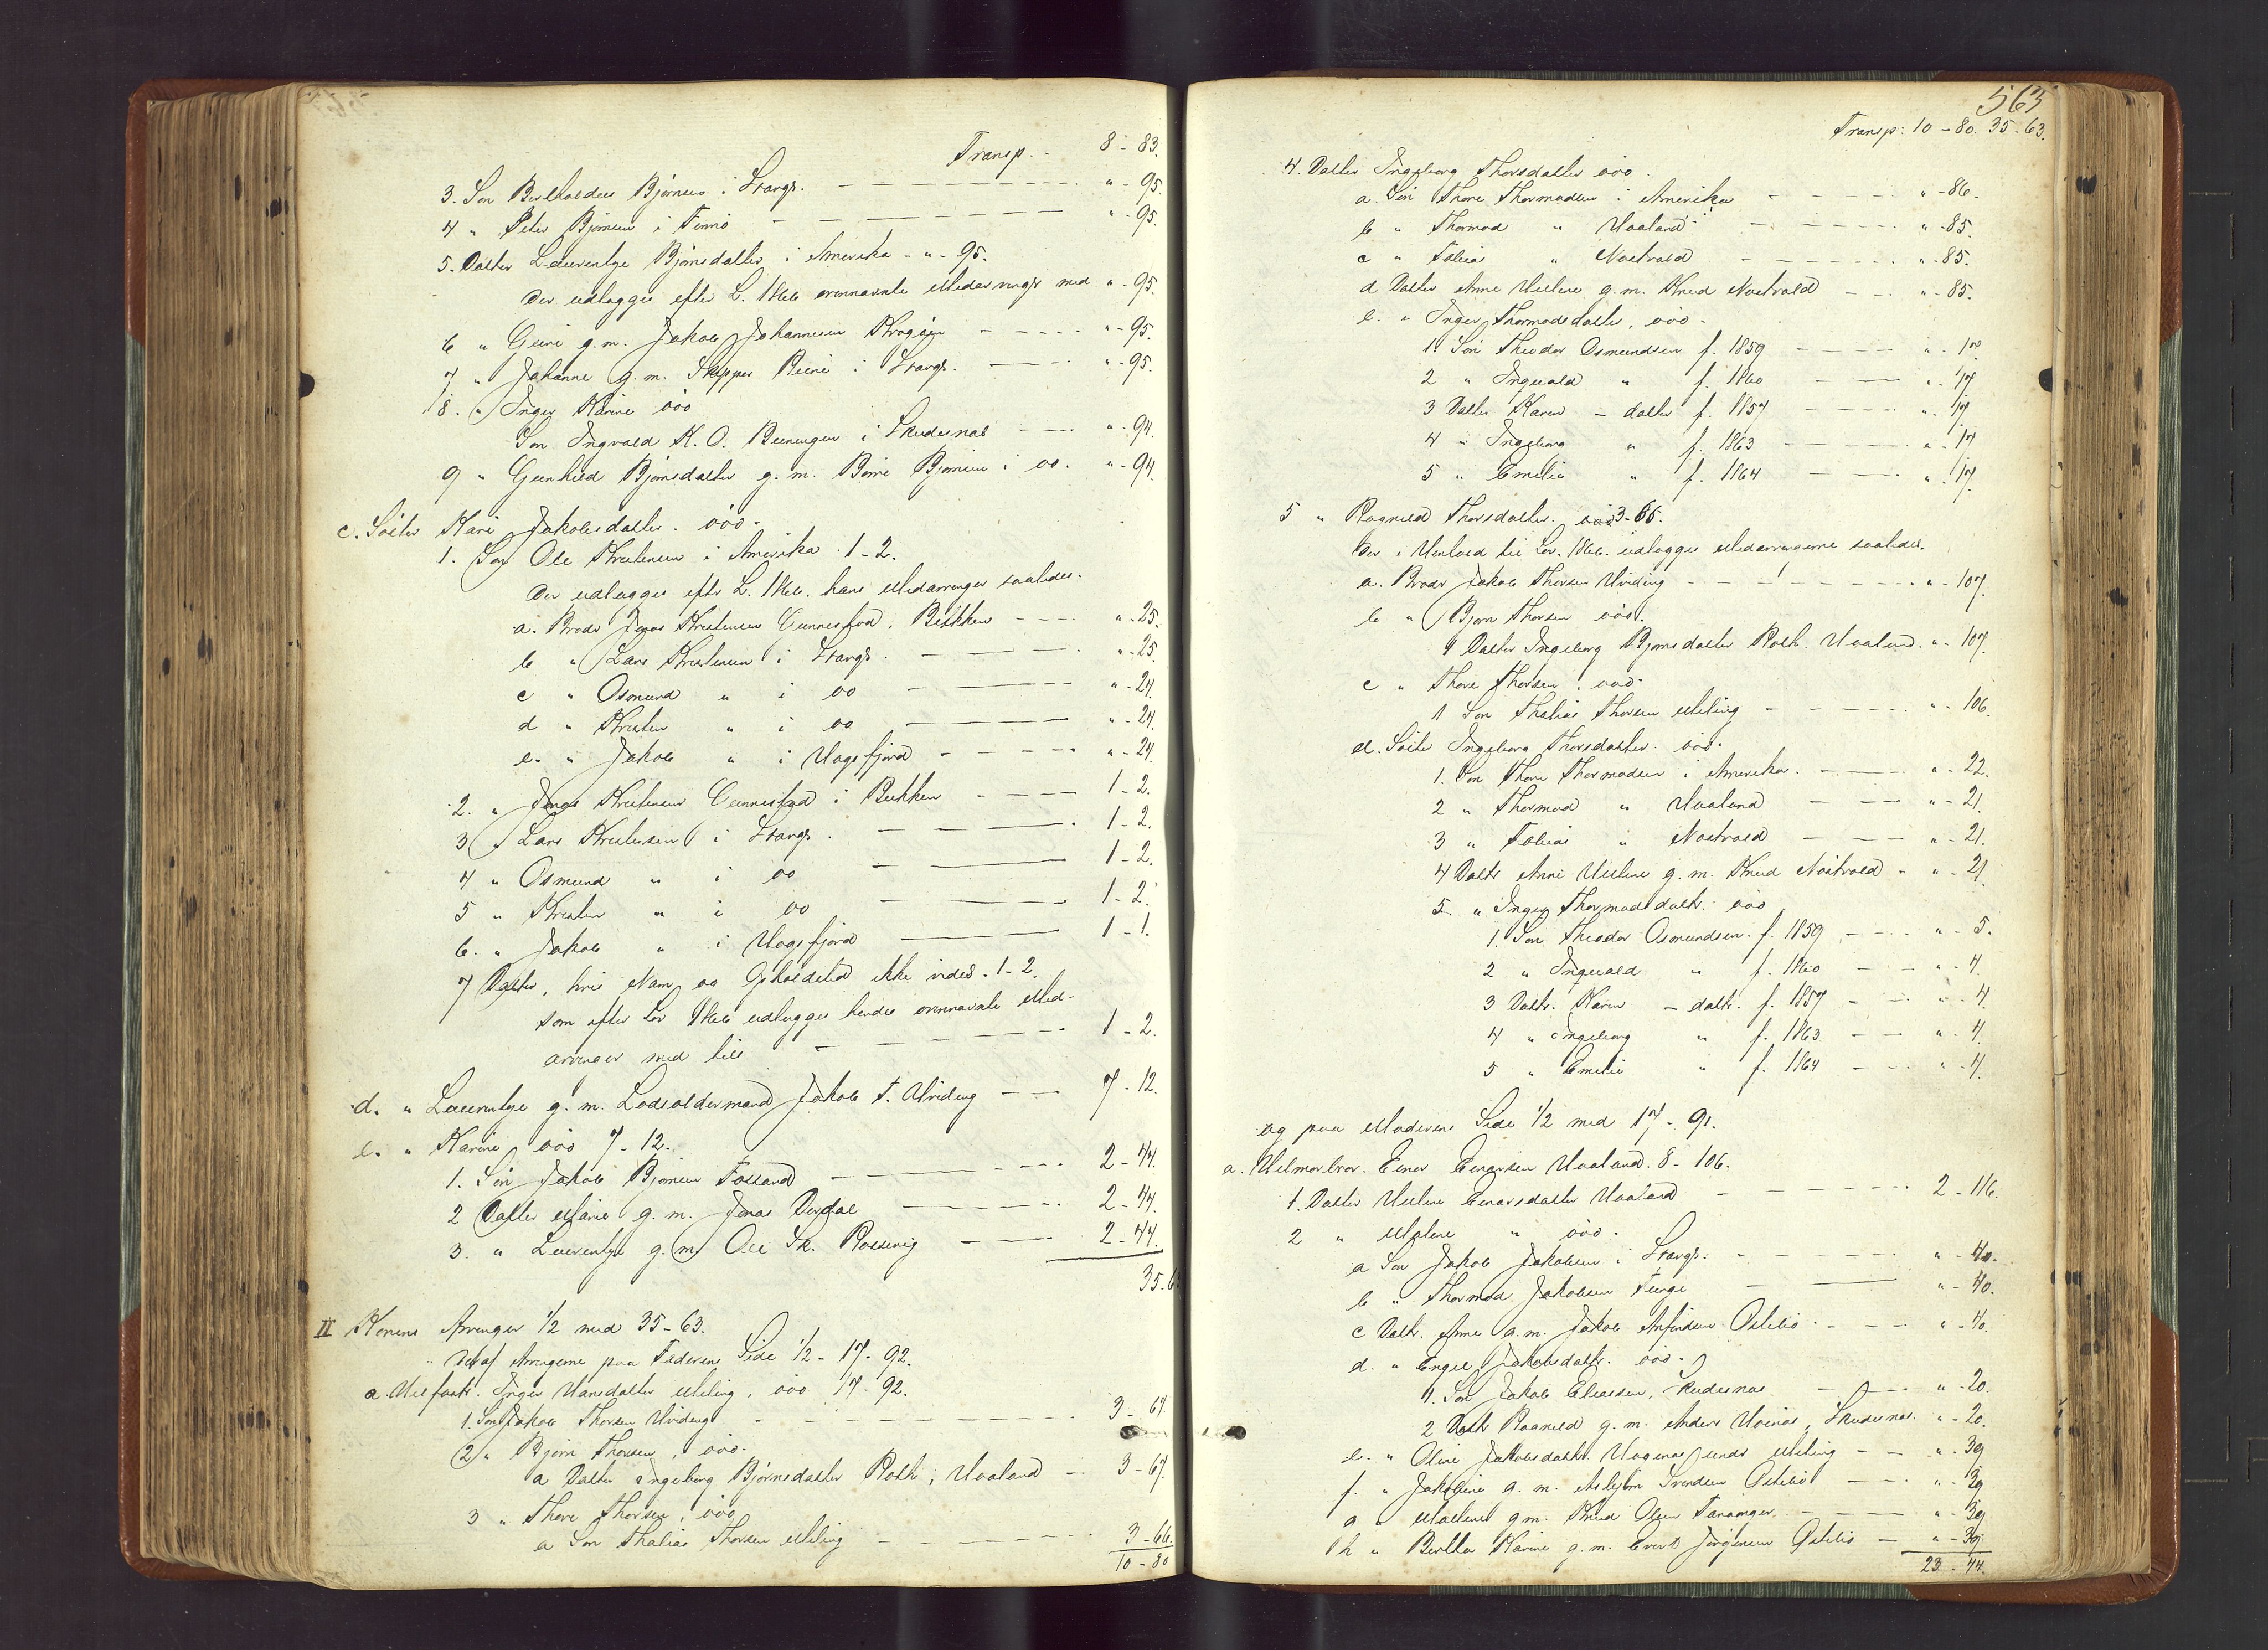 Transp. - 8 - 83.
3. Søn Bertholdeus Bjørnsen i Stavgr. - " - 95.
4 " Peter Bjørnsen i Finnø - " - 95.
5. Datter Laurentze Bjørnsdatter i Amerika - " - 95.
der udlægges efter L. 1866 ovennævnte Medarvinger med " - 95.
6 " Guri g. m. Jakob Johannesen Krogøen - " - 95.
7 " Johanne g. m. Skipper Reine i Stavgr. - " - 95.
8. " Inger Karine død
Søn Ingvald K. O. Beeningen i Skudesnæs - " - 94.
9 " Gunhild Bjørnsdatter g. m. Børre Bjørnsen i do. " - 94.
c. Søster Kari Jakobsdatter. død -
1. Søn Ole Kristensen i Amerika 1 - 2.
der udlægges efter L. 1866. hans Medarvinger saaledes.
a. Broder Jonas Kristensen Gunnestad, Bukken - " - 25.
b " Lars Kristensen i Stavgr. - " - 25.
c " Osmund " i do - " - 24.
d " Kristen " i do - " - 24.
e. " Jakob " i Vagsfjord - " - 24.
2. " Jonas Kristensen Gunnestad i Bukken - 1 - 2.
3 " Lars Kristensen i Stavgr. - 1 - 2.
4 " Osmund " i do - 1 - 2.
5 " Kristen " i do - 1 - 2.
6. " Jakob " i Vagsfjord - 1 - 1.
7 Datter, hvis Navn og Opholdsted ikke vides - 1 - 2.
som efter Lov 1866 udlægges hendes ovennævnte Med-
arvinger med hver - 1 - 2.
d. " Laurentze g. m. Lodsoldermand Jakob T. Hviding - 7 - 12.
e. " Karine død 7 - 12.
1. Søn Jakob Bjørnsen Fosland - 2 - 44.
2 Datter Marie g. m. Jonas Dusfal - 2 - 44.
3. " Laurentze g. m. Ole Sk. Rossevig - 2 - 44.
35.
II Konens Arvinger 1/2 med 35 - 63.
" Udaf Arvingerne paa Faderens Side 1/2 - 17 - 92.
a. Halfastr. Inger Hansdatter Meling, død 17 - 92.
1. Søn Jakob Thorsen Hviding - 3 - 67.
2 " Bjørn Thorsen, død.
a Datter Ingeborg Bjørnsdatter Roth, Haaland - 3 - 67.
3 " Thore Thorsen, død
a Søn Thalias Thorsen Meling - 3 - 66.
10 - 80
563
Transp: 10 - 80. 35 - 63.
4. Datter Ingeborg Thorsdatter død.
a. Søn Thore Thormodsen i Amerika - " - 86.
b " Thormod " Haaland - " - 85.
c " Tobias " Nortvold - " - 85.
d Datter Anne Helene g. m. Knud Nortvold - " - 85.
e. " Inger Thormodsdatter, død -
1. Søn Theodor Osmundsen f. 1859 - " - 17.
2 " Ingvald " f. 1860 - " - 17.
3 Datter Karen - datter f. 1857 - " - 17.
4 " Ingeborg " f. 1863 - " - 17.
5 " Emilie " f. 1864 - " - 17.
5 " Ragnild Thorsdatter. død 3 - 65.
der i Henhold til Lov. 1866. udlægges Medarvingerne saaledes.
a. Broder Jakob Thorsen Hviding - " - 107.
b " Bjørn Thorsen død.
1 Datter Ingeborg Bjørnsdatter Roth. Haaland. " - 107.
c " Thore Thorsen, død -
1 Søn Thalias Thorsen Meling - " - 106.
d. Søster Ingeborg Thorsdatter. død -
1. Søn Thore Thormodsen i Amerika. - " - 22.
2 " Thormod " Haaland - " - 21.
3 " Tobias " Nortvold - " - 21.
4 Datter Anne Helene g. m. Knud Nortvold - " - 21
5. " Inger Thormodsdatter. død
1. Søn Theodor Osmundsen. f. 1859 - " - 5.
2 " Ingvald " f. 1860 - " - 4.
3 Dattr. Karen - datter. f. 1857 - " - 4.
4 " Ingeborg " f. 1863 - " - 4.
5 " Emilie " f. 1864 - " - 4.
og paa Moderens Side 1/2 med 17 - 91.
a. Halmorbror. Einar Einarsen Haaland. 8 - 106.
1. Datter Helene Einarsdatter Haaland - 2 - 116.
2 " Malene " død -
a Søn Jakob Jakobsen i Stavgr. - " - 40.
b " Thormod Jakobsen Tunge - " - 40.
c Dattr. Anne g. m. Jakob Anfindsen Østebø - " - 40.
d. " Engel Jakobsdatter. død -
1. Søn Jakob Eliassen, Skudesnæs - " - 20.
2 Dattr Ragnild g. m. Anders Høinæs, Skudesnæs. " - 20.
e. " Oline Jakobsdattr. Vagenæs under Meling - " - 39
f. " Jakobine g. m. Aslejom Svendsen Østebø - " - 39
g " Mallene g. m. Knud Olsen Tananger. - " - 39
h " Bertha Karine g. m. Evert Jørgensen Østebø - " - 39.
23 - 44.